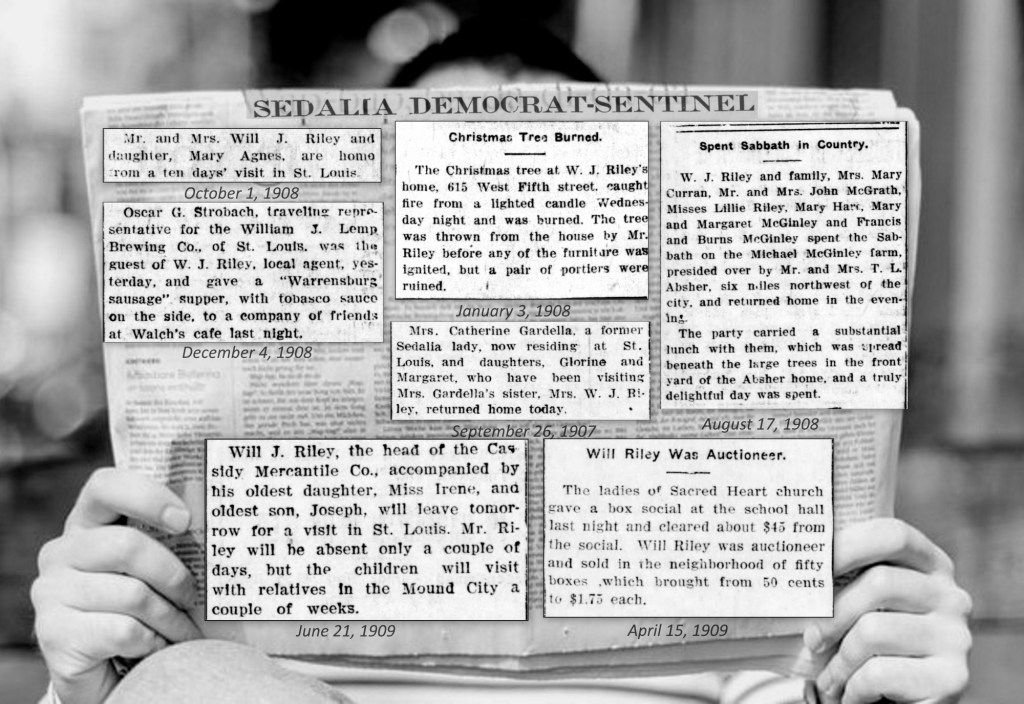 SEDALIA DEMOCRAT-SENTINEL
Mr. and Mrs. Will J. Riley and
daughter, Mary Agnes, are home
from a ten days' visit in St. Louis.
October 1, 1908
Oscar G. Strobach, traveling repre-
sentative for the William J. Lemp
Brewing Co., of St. Louis, was the
guest of W. J. Riley, local agent, yes-
terday, and gave a "Warrensburg
sausage" supper, with tobasco sauce
on the side, to a company of friends
at Walch's cafe last night.
December 4, 1908
Christmas Tree Burned.
The Christmas tree at W. J. Riley's
home, 615 West Fifth street, caught
fire from a lighted candle Wednes-
day night and was burned. The tree
was thrown from the house by Mr.
Riley before any of the furniture was
ignited, but a pair of portiers were
ruined.
January 3, 1908
Mrs. Catherine Gardella, a former
Sedalia lady, now residing at St.
Louis, and daughters, Glorine and
Margaret, who have been visiting
Mrs. Gardella's sister, Mrs. W. J. Ri-
ley, returned home today.
September 26, 1907
Spent Sabbath in Country.
W. J. Riley and family, Mrs. Mary
Curran, Mr. and Mrs. John McGrath,
Misses Lillie Riley, Mary Hart, Mary
and Margaret McGinley and Francis
and Burns McGinley spent the Sab-
bath on the Michael McGinley farm,
presided over by Mr. and Mrs. T. L.
Absher, six miles northwest of the
city, and returned home in the even-
ing.
The party carried a substantial
lunch with them, which was spread
beneath the large trees in the front
yard of the Absher home, and a truly
delightful day was spent.
August 17, 1908
Will J. Riley, the head of the Cas-
sidy Mercantile Co., accompanied by
his oldest daughter, Miss Irene, and
oldest son, Joseph, will leave tomor-
row for a visit in St. Louis. Mr. Ri-
ley will be absent only a couple of
days, but the children will visit
with relatives in the Mound City a
couple of weeks.
June 21, 1909
Will Riley Was Auctioneer.
The ladies of Sacred Heart church
gave a box social at the school hall
last night and cleared about $45 from
the social. Will Riley was auctioneer
and sold in the neighborhood of fifty
boxes ,which brought from 50 cents
to $1.75 each.
April 15, 1909